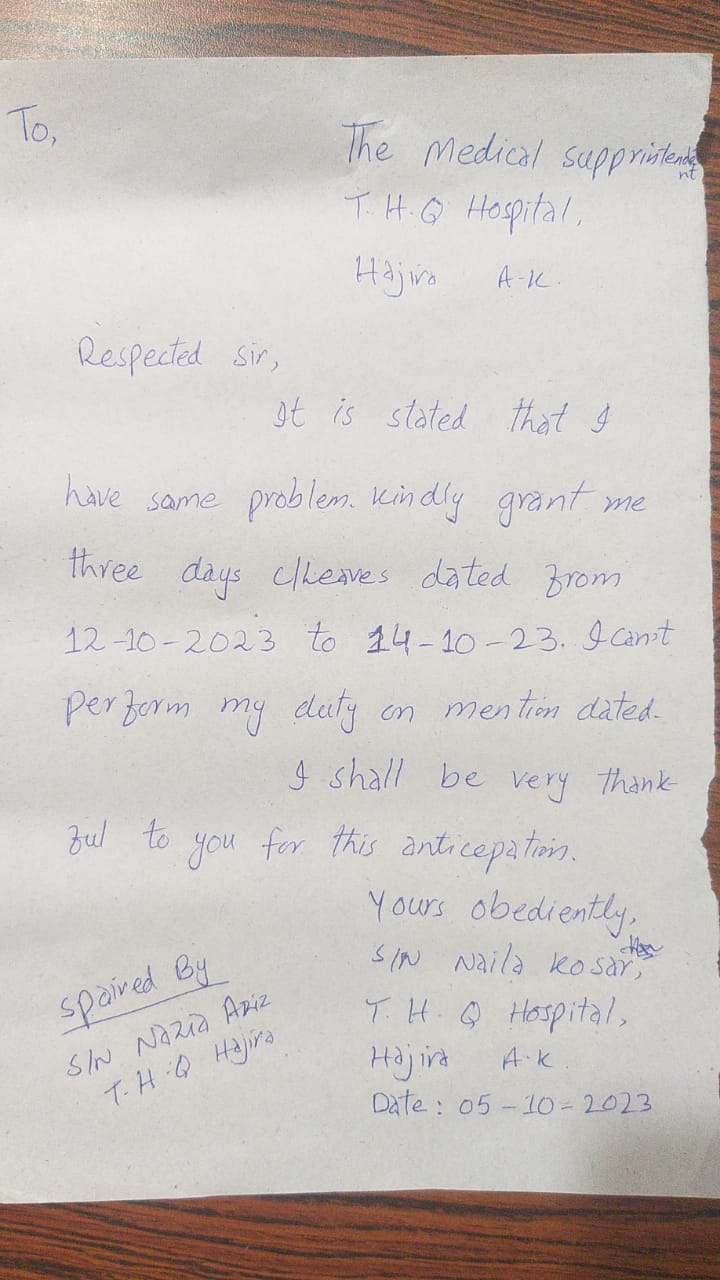 To,
The Medical supprintendent
T.H.Q Hospital,
Hajira A-K.
Respected Sir,
It is stated that I
have some problem. kindly grant me
three days c/Leaves dated from
12-10-2023 to 14-10-23. I can't
perform my duty on mention dated.
I shall be very thank-
ful to you for this anticepation.
Yours obediently,
S/N Naila kosar,
T.H.Q Hospital,
Hajira A.K
Date: 05-10-2023
spaired By
S/N Nazia Aziz
T.H.Q Hajira.